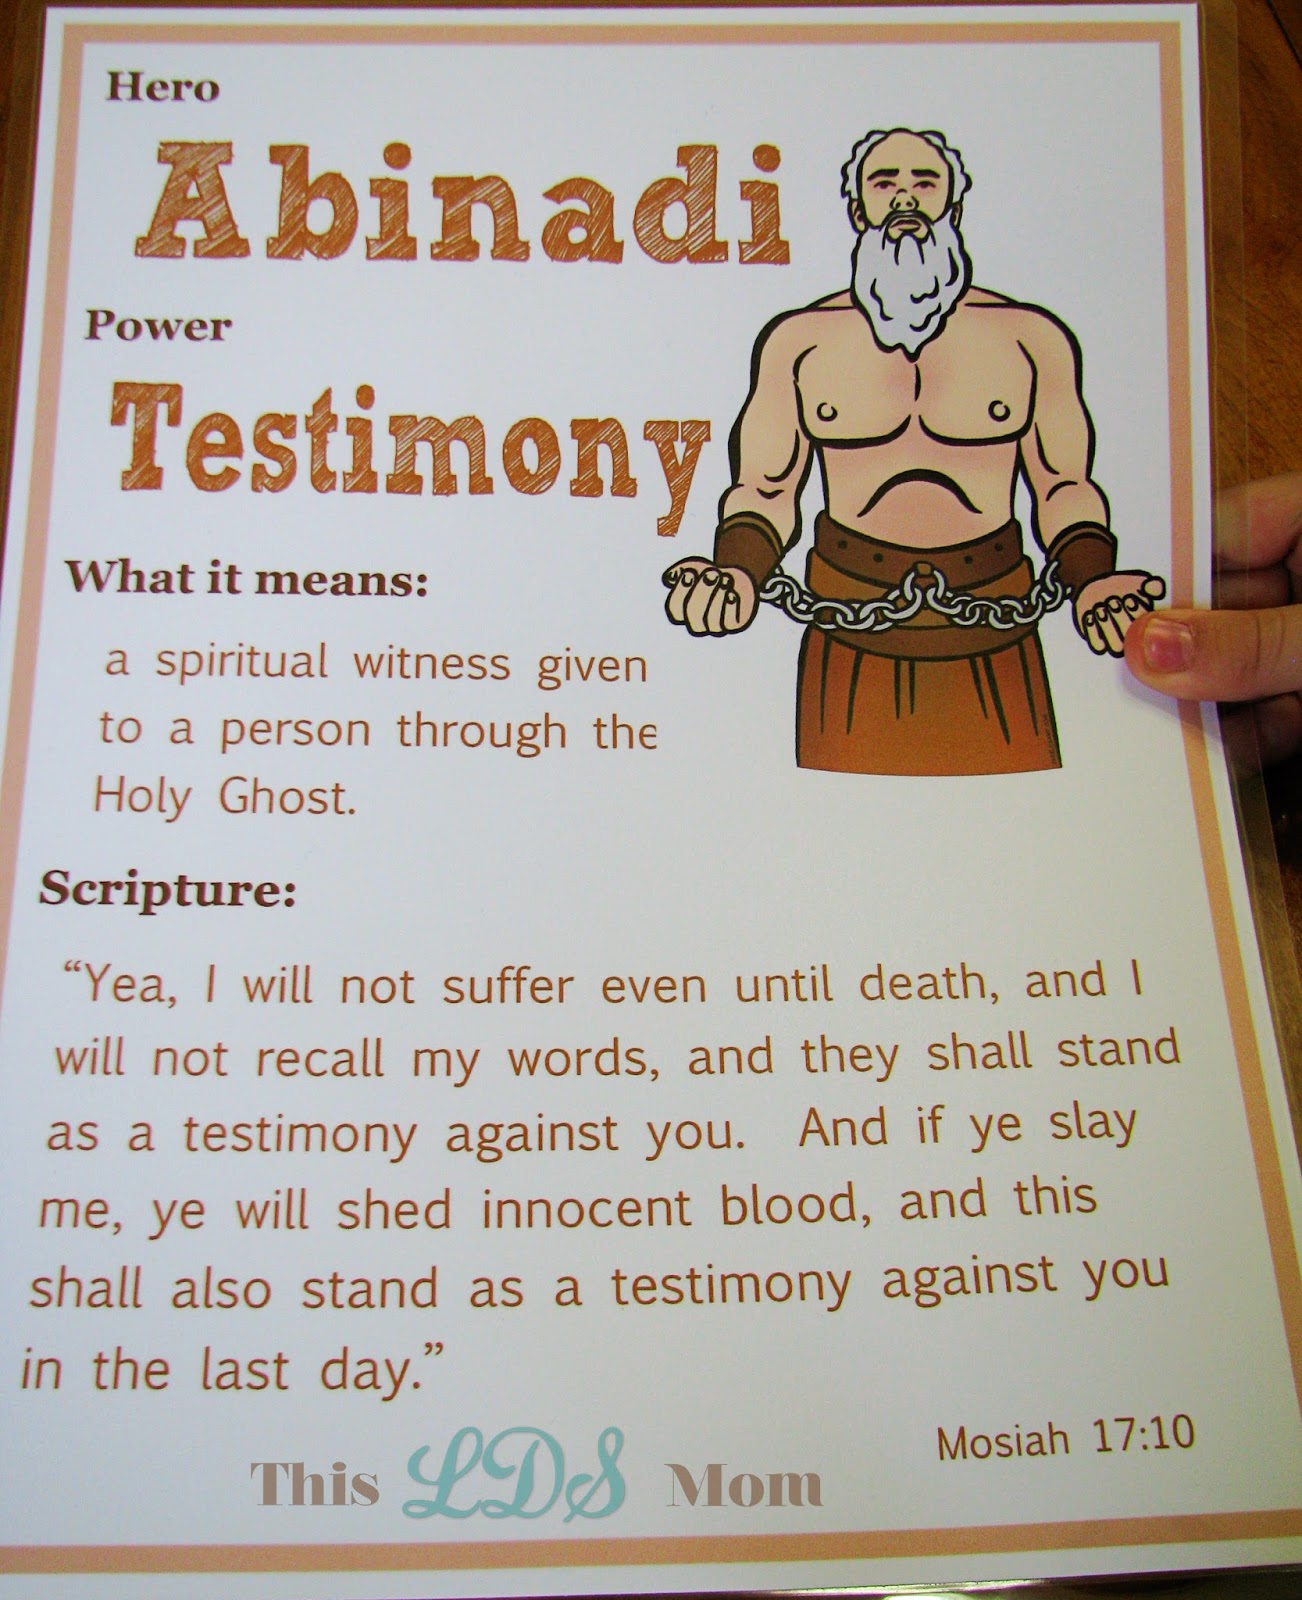 Hero
Abinadi
Power
Testimony
What it means:
a spiritual witness given
to a person through the
Holy Ghost.
Scripture:
“Yea, I will not suffer even until death, and I
will not recall my words, and they shall stand
as a testimony against you. And if ye slay
me, ye will shed innocent blood, and this
shall also stand as a testimony against you
in the last day.”
Mosiah 17:10
This LDS Mom